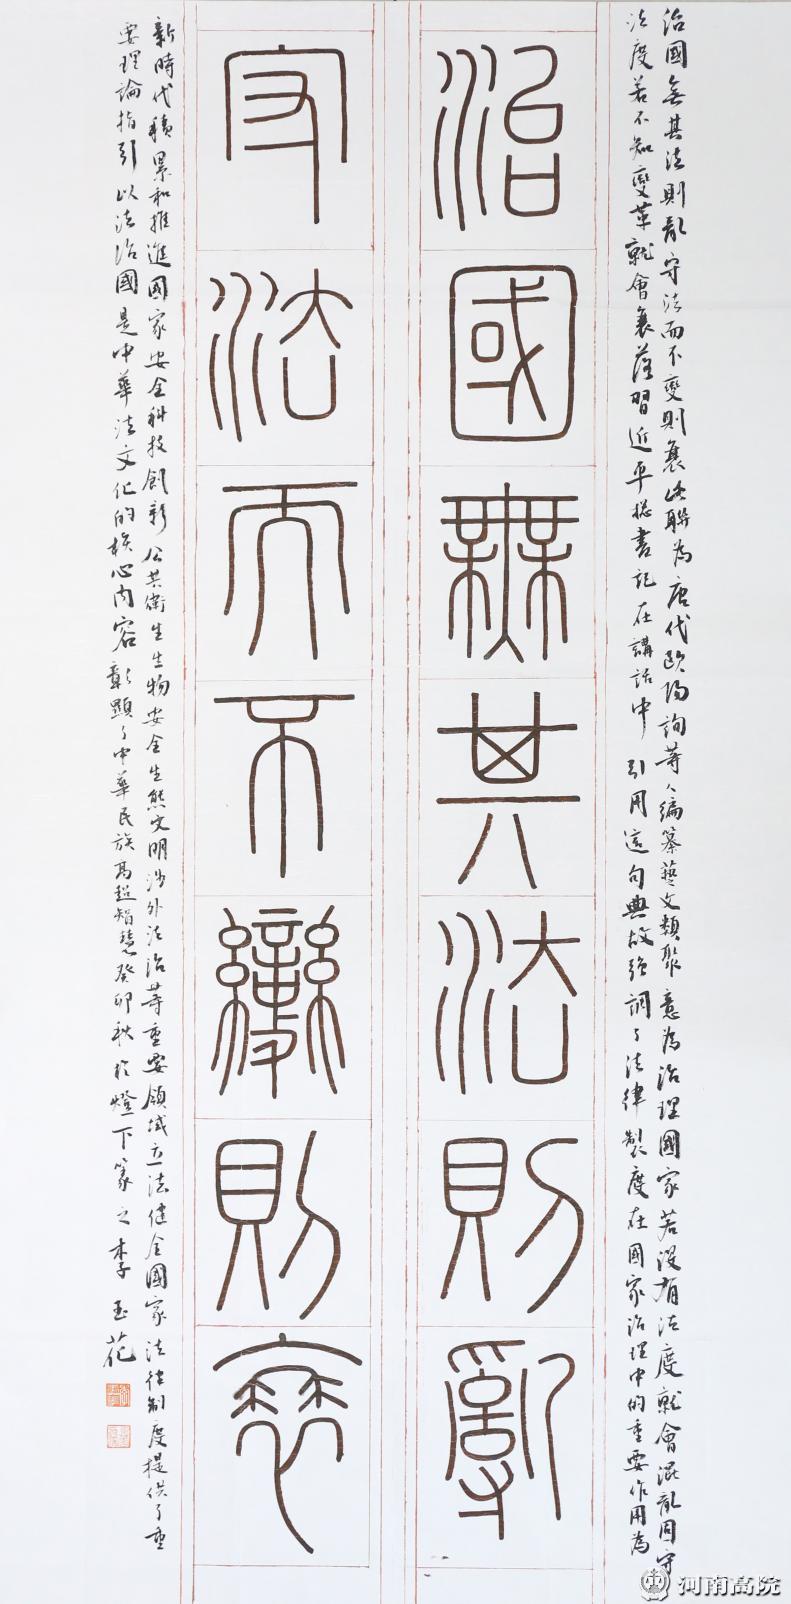 治國無其法則亂
守法而不變則衰
治國無其法則亂守法而不變則衰此聯為唐代歐陽詢等人編纂藝文類聚意為治理國家若沒有法度就會混亂固守
法度若不知變革就會衰落習近平總書記在講話中引用這句典故強調了法律製度在國家治理中的重要作用為
新時代積累和推進國家安全科技創新公共衛生生物安全生態文明涉外法治等重要領域立法健全國家法律制度提供了重
要理論指引以法治國是中華法文化的核心內容彰顯了中華民族高超智慧癸卯秋於燈下篆之李玉花
河南高院